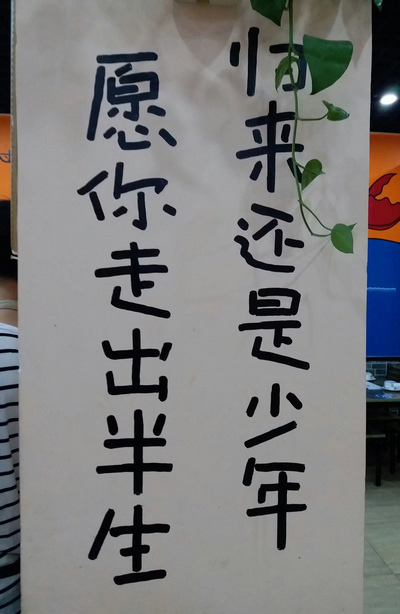 愿你走出半生
归来还是少年